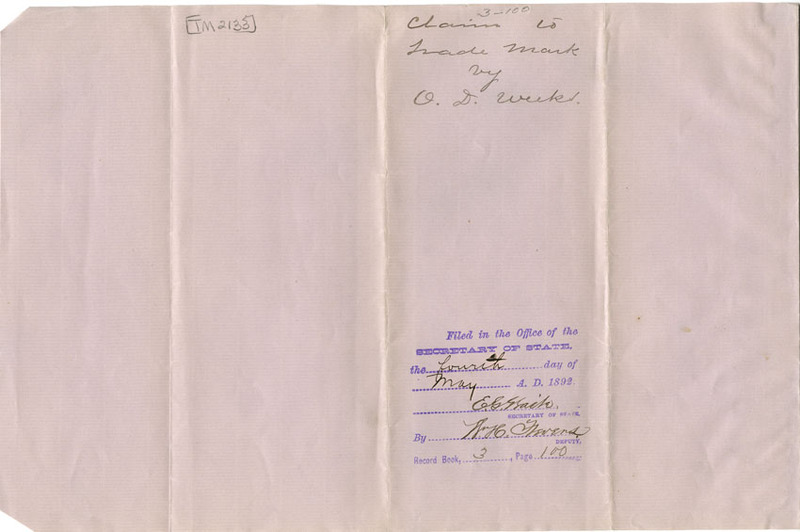 TM2133
3-100
Claim to
Trade Mark
by
O. D. Weeks.
Filed in the Office of the
SECRETARY OF STATE,
the fourth day of
May A. D. 1892.
E. G. Waite.
SECRETARY OF STATE.
By W. H.
DEPUTY.
Record Book, 3, Page 100